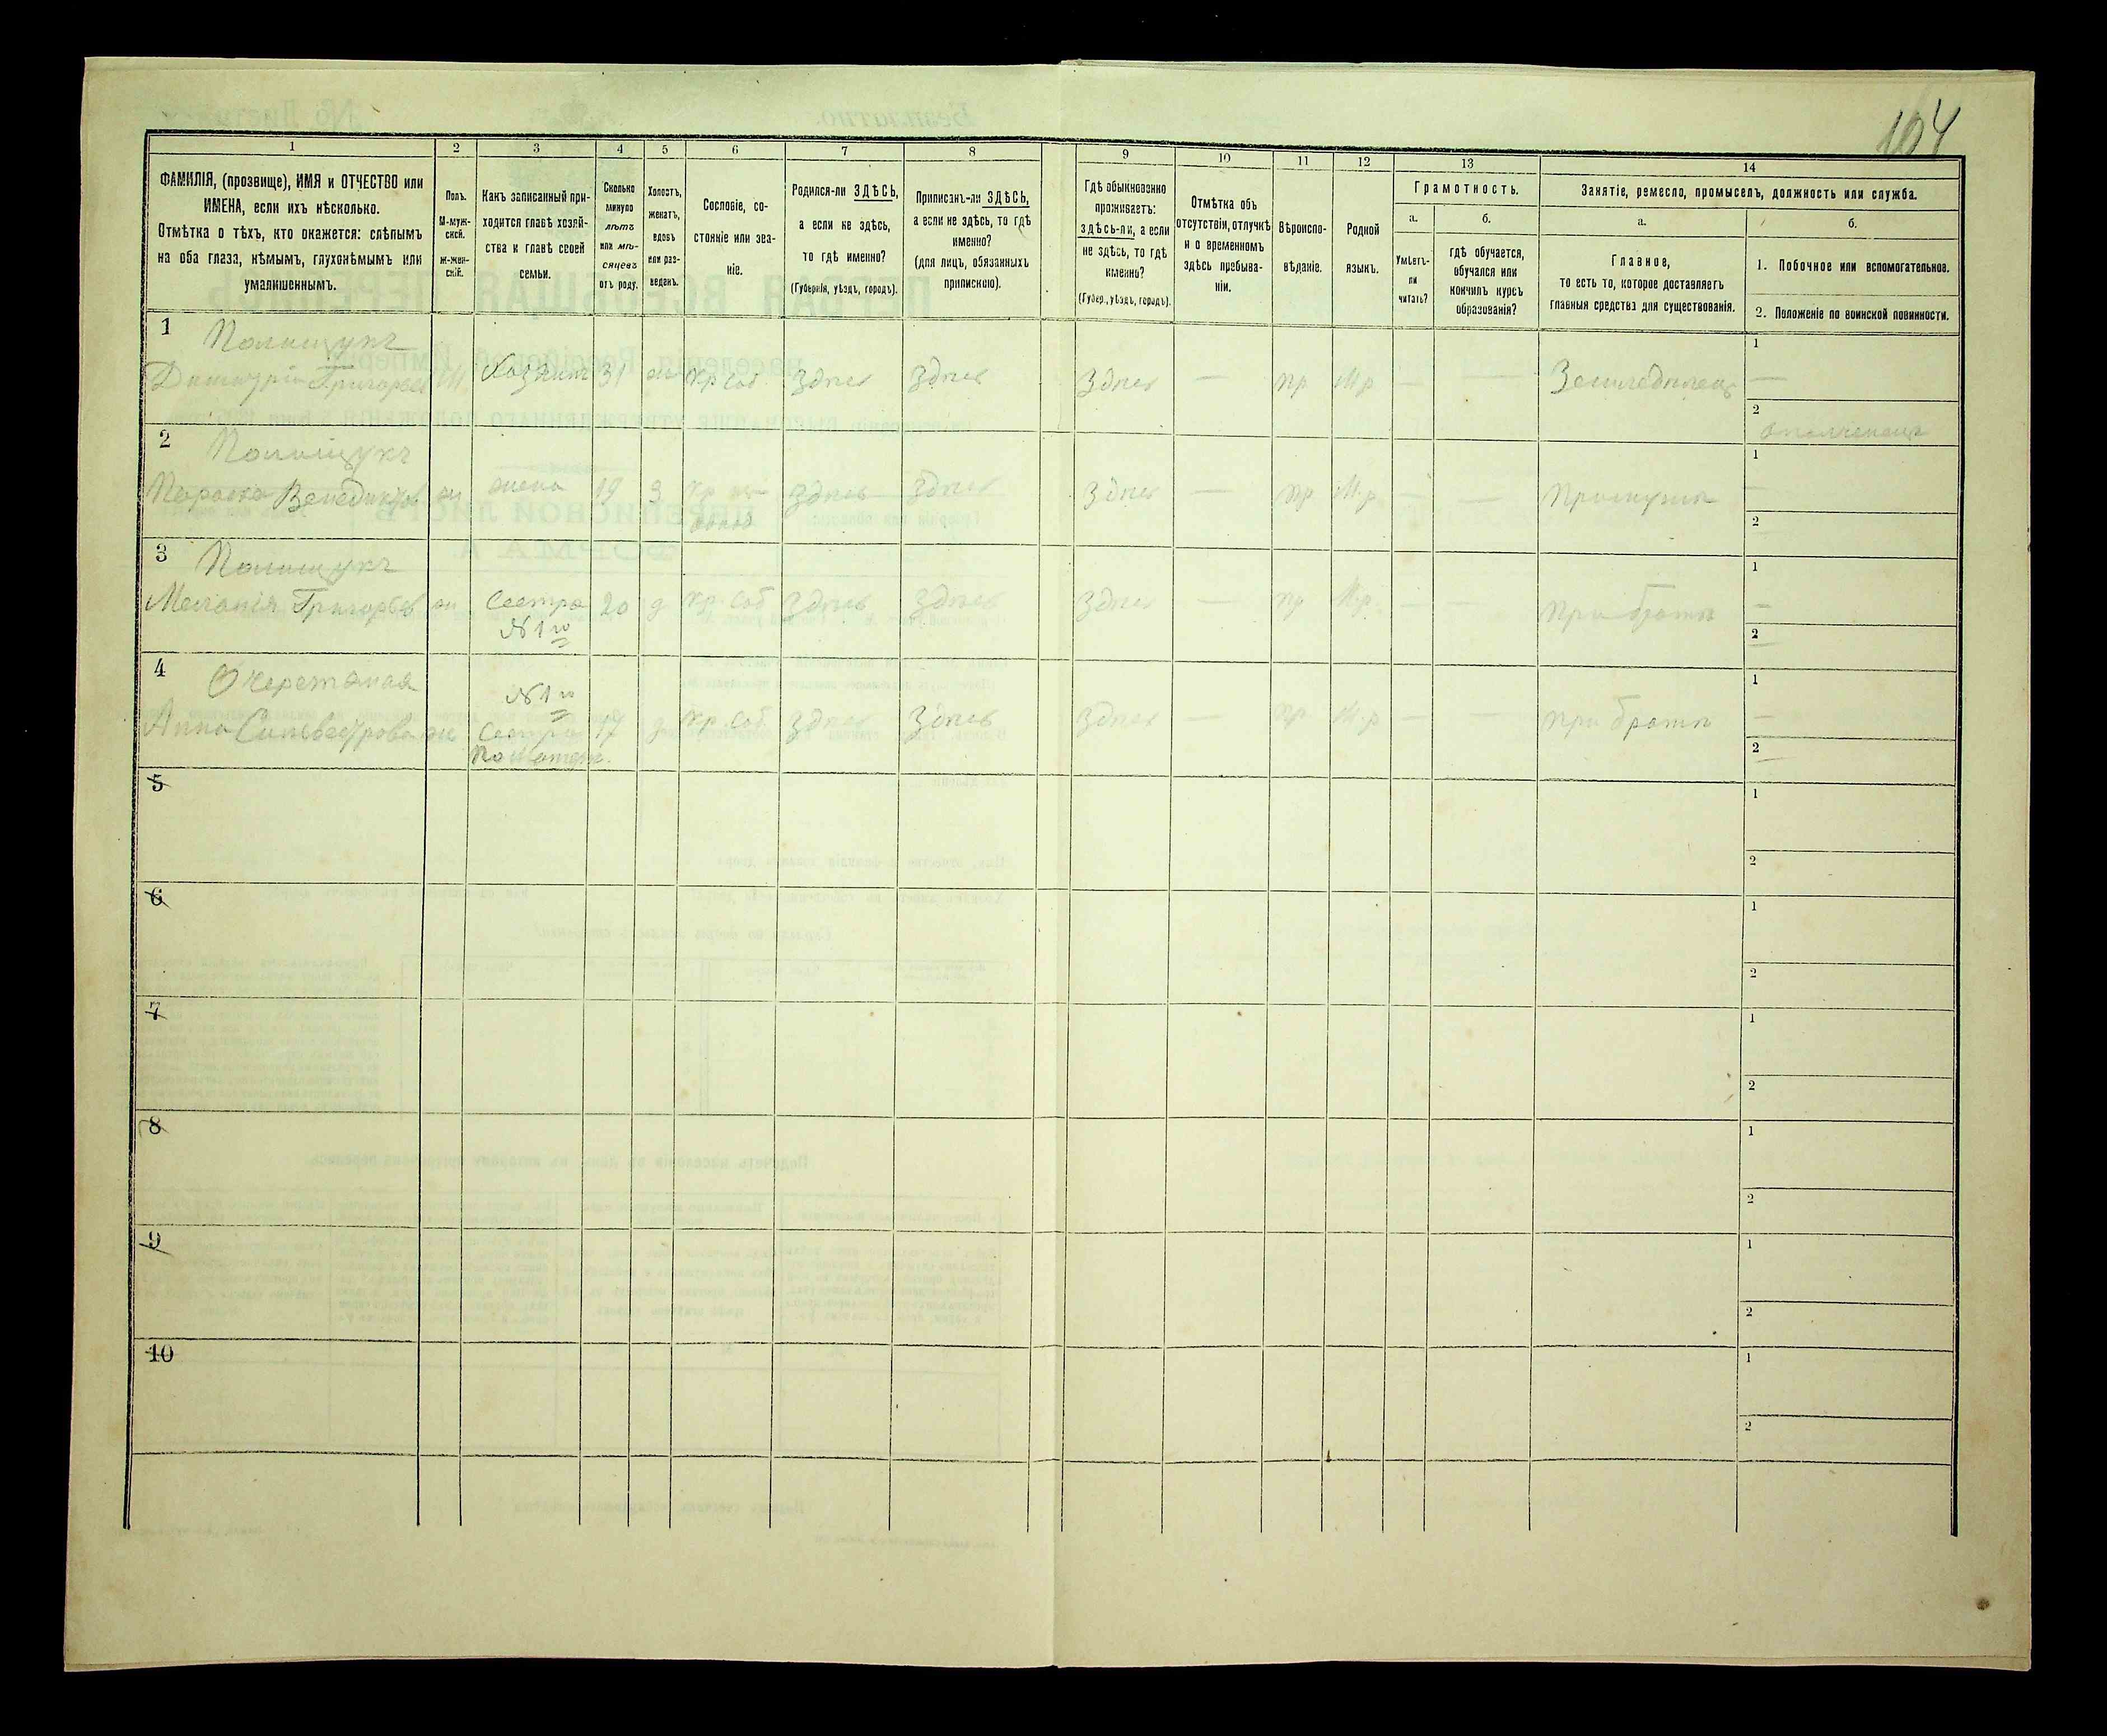 104
1 2 3 4 5 6 7 8 9 10 11 12 13 14
ФАМИЛІЯ, (прозвище), ИМЯ и ОТЧЕСТВО или
ИМЕНА, если ихъ нѣсколько.
Отмѣтка о тѣхъ, кто окажется: слѣпымъ
на оба глаза, нѣмымъ, глухонѣмымъ или
умалишеннымъ.
Полъ.
М-муж-
ской.
ж-жен-
скій.
Какъ записанный при-
ходится главѣ хозяй-
ства и главѣ своей
семьи.
Сколько
минуло
лѣтъ
или мѣ-
сяцевъ
отъ роду.
Холостъ,
женатъ,
вдовъ
или раз-
веденъ.
Сословіе, со-
стояніе или зва-
ніе.
Родился-ли ЗДѢСЬ,
а если не здѣсь,
то гдѣ именно?
(Губернія, уѣздъ, городъ).
Приписанъ-ли ЗДѢСЬ,
а если не здѣсь, то гдѣ
именно?
(для лицъ, обязанныхъ
припискою).
Гдѣ обыкновенно
проживаетъ:
здѣсь-ли, а если
не здѣсь, то гдѣ
именно?
(Губер., уѣздъ, городъ).
Отмѣтка объ
отсутствіи, отлучкѣ
и о временномъ
здѣсь пребыва-
ніи.
Вѣроиспо-
вѣданіе.
Родной
языкъ.
Грамотность.
а.
Умѣетъ-
ли
читать?
б.
гдѣ обучается,
обучался или
кончилъ курсъ
образованія?
Занятіе, ремесло, промыселъ, должность или служба.
а.
Главное,
то есть то, которое доставляетъ
главныя средства для существованія.
б.
1. Побочное или вспомогательное.
2. Положеніе по воинской повинности.
1 Полищукъ 1
Дмитрій Григорьев М. Хозяин 31 ж Кр соб. Здѣсь Здѣсь Здѣсь — пр М.р — — Земледѣлец —
2 ополченецъ
2 Полищукъ 1
Параска Венедиктов ж жена 19 З Здѣсь Здѣсь Здѣсь — пр М.р — — При мужѣ —
2
3 Полищукъ 1
Меланія Григорьев ж Сестра 20 д Кр. Соб Здѣсь Здѣсь Здѣсь — пр М.р. — — При братѣ —
№ 1го 2
4 Очеретяная 1
№ 1го
Анна Сильвестрова ж Сестра 17 д Кр. Соб. Здѣсь Здѣсь Здѣсь — пр М.р — — при братѣ —
по матери. 2
5 1
2
6 1
2
7 1
2
8 1
2
9 1
2
10 1
2